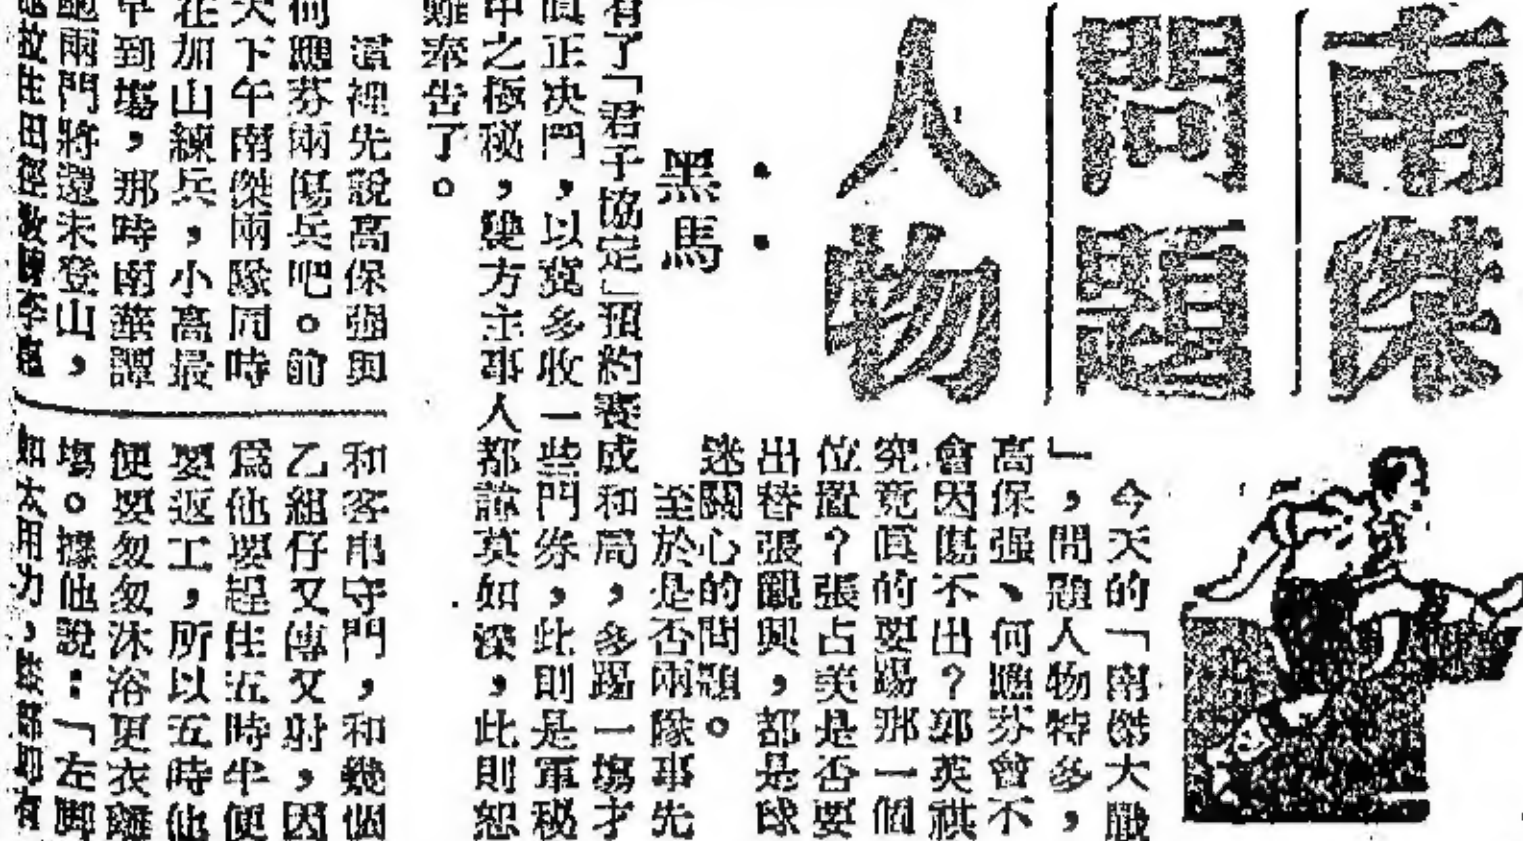 南傑
問題
人物
黑馬
今天的「南傑大戰
」，問題人物特多，
高保强、何應芬會不
會因傷不出？郭英祺
究竟真的要踢那一個
位置？張占美是否要
出替張觀興，都是球
迷關心的問題。
至於是否兩隊事先
有了「君子協定」預約賽成和局，多踢一塲才
真正决鬥，以冀多收一些門券，此則是軍秘
中之極秘，雙方主事人都諱莫如深，此則恕
難奉告了。
這裡先說高保强與
何應芬兩傷兵吧。前
天下午南傑兩隊同時
在加山練兵，小高最
早到塲，那時南華譚
鮑兩門將還未登山，
故往田徑教練李惠
和客串守門，和幾個
乙組仔又傳又射，因
爲他要趕住五時半便
要返工，所以五時他
便要匆匆沐浴更衣離
塲。據他說：「左脚
如太用力，有